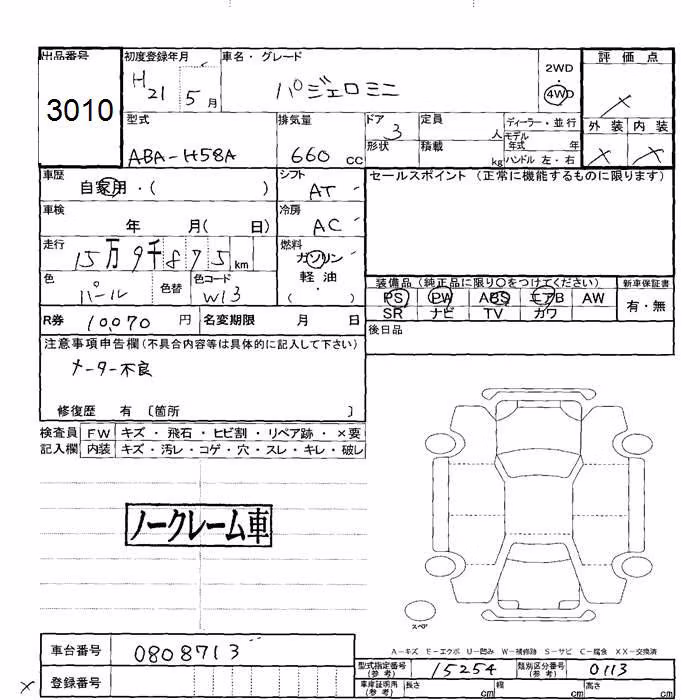 出品番号 初度登録年月 車名・グレード 評価点
3010 H21 5月 パジェロミニ 2WD・4WD ×
型式 排気量 ドア 定員 ディーラー・並行 外装 内装
ABA-H58A 660cc 3 人 モデル年式 年 × ×
形状 積載 kg ハンドル 左・右
車歴 シフト セールスポイント (正常に機能するものに限ります)
自家用・( ) AT
車検 冷房
年 月( 日) AC
走行 燃料
15万9千875km ガソリン
色 色替 色コード 軽油
パール W13 ( )
装備品 (純正品に限り○をつけてください) 新車保証書
PS PW ABS エアB AW 有・無
SR ナビ TV カワ
R券 10,070円 名変期限 月 日
後日品
注意事項申告欄(不具合内容等は具体的に記入して下さい)
メーター不良
修復歴 有 〔箇所 〕
検査員 FW キズ・飛石・ヒビ割・リペア跡・×要
記入欄 内装 キズ・汚レ・コゲ・穴・スレ・キレ・破レ
ノークレーム車
スペア
A-キズ E-エクボ U-凹み W-補修跡 S-サビ C-腐食 XX-交換済
車台番号 0808713
型式指定番号(参考) 15254 類別区分番号(参考) 0113
× 登録番号
車庫証明用(参考) 長さ cm 幅 cm 高さ cm